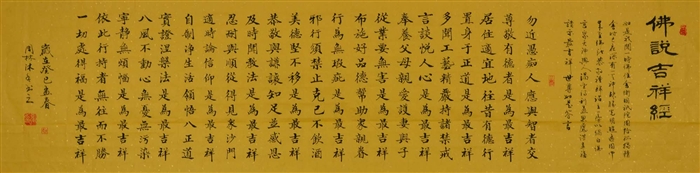 佛說吉祥經
勿近愚痴人應與智者交
尊敬有德者是為最吉祥
居住適宜地往昔有德行
置身於正道是為最吉祥
多聞工藝精嚴持諸禁戒
言談悅人心是為最吉祥
奉養父母親愛護妻與子
從業要無害是為最吉祥
布施好品德幫助眾親眷
行為無瑕疵是為最吉祥
邪行須禁止克己不飲酒
美德堅不移是為最吉祥
恭敬與謙讓知足並感恩
及時聞教法是為最吉祥
忍耐與順從得見眾沙門
適時論信仰是為最吉祥
自制淨生活領悟八正道
實證涅槃法是為最吉祥
八風不動心無憂無污染
寧靜無煩惱是為最吉祥
依此行持者無往而不勝
一切處得福是為最吉祥
歲在癸巳孟春